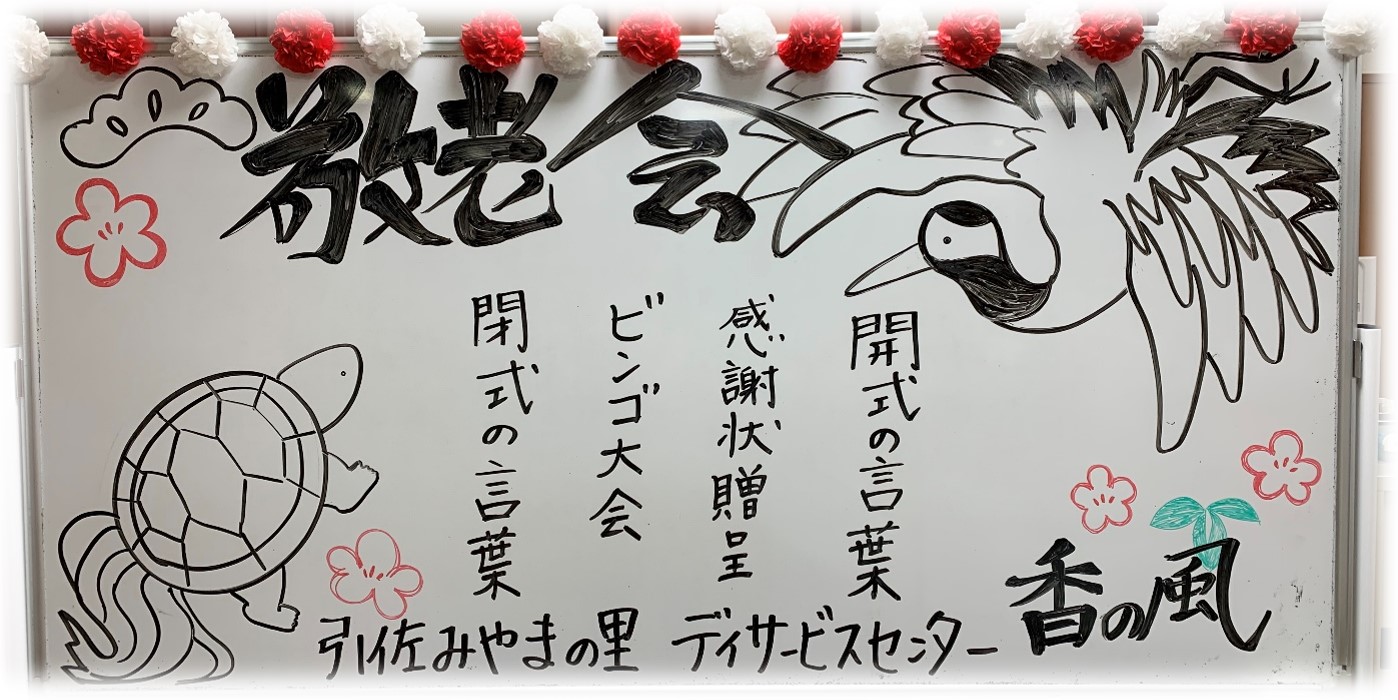 敬老会
開式の言葉
感謝状贈呈
ビンゴ大会
閉式の言葉
引佐みやまの里 デイサービスセンター
香の風